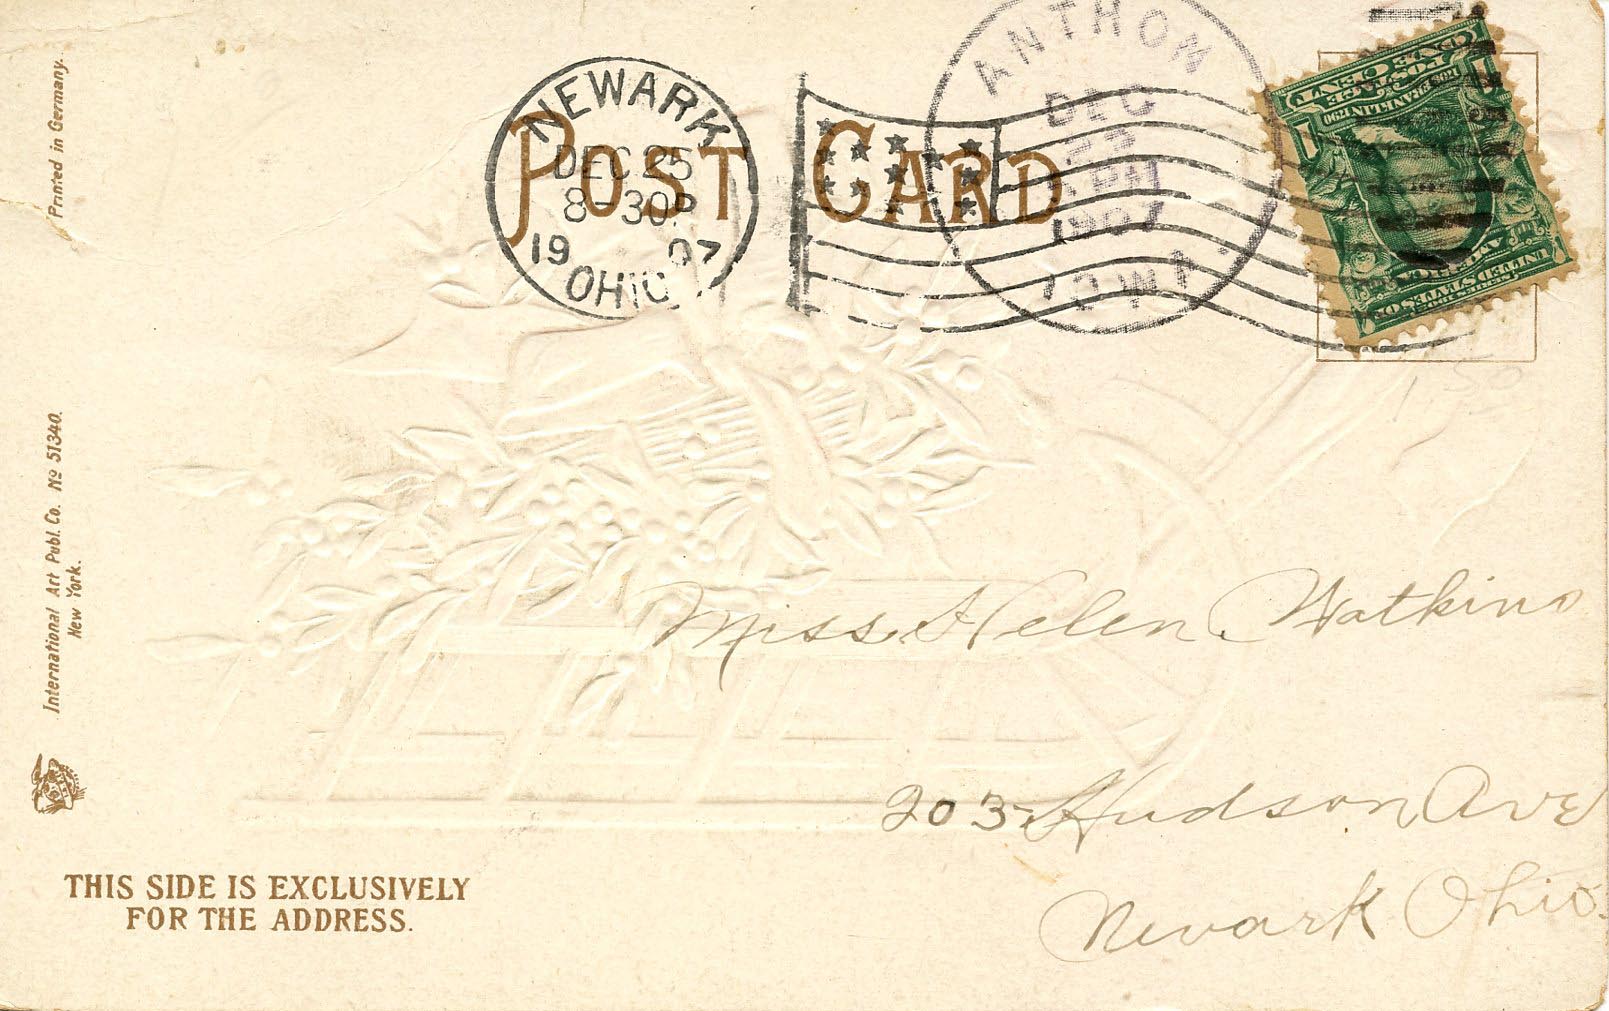 Printed in Germany.
International Art Publ. Co. No 51340.
New York.
POST CARD
NEWARK
DEC 25
8-30P
1907
OHIO
ANTHON
DEC
23
PM
1907
IOWA.
ONE CENT
POSTAGE
FRANKLIN
1
UNITED STATES OF
AMERICA
1.50
Miss Helen Watkins
203 Hudson Ave
Newark Ohio.
THIS SIDE IS EXCLUSIVELY
FOR THE ADDRESS.